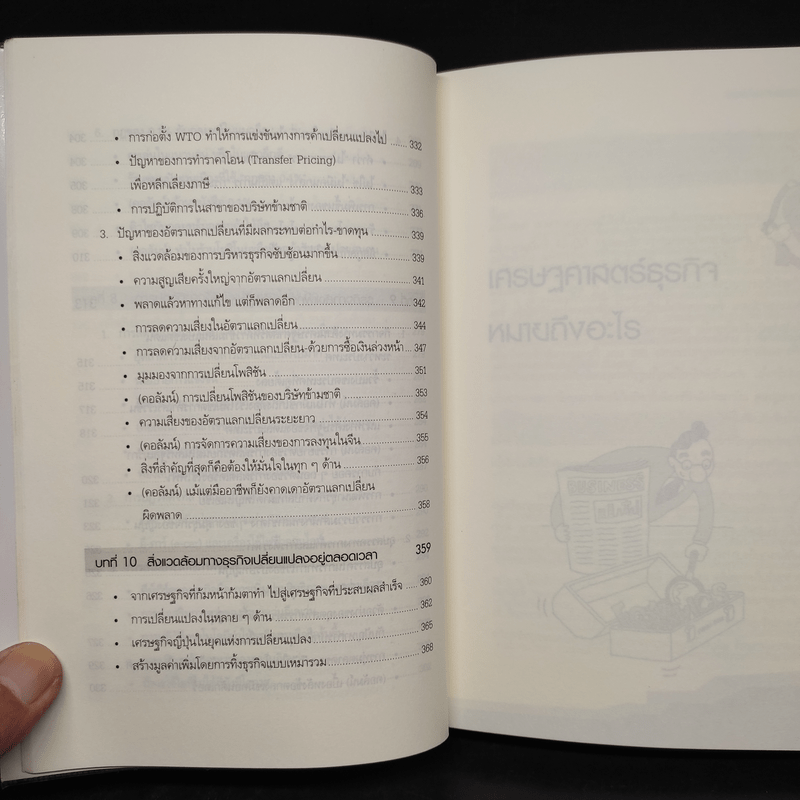 • การก่อตั้ง WTO ทำให้การแข่งขันทางการค้าเปลี่ยนแปลงไป ...... 332
• ปัญหาของการทำราคาโอน (Transfer Pricing)
เพื่อหลีกเลี่ยงภาษี ...... 333
• การปฏิบัติการในสาขาของบริษัทข้ามชาติ ...... 336
3. ปัญหาของอัตราแลกเปลี่ยนที่มีผลกระทบต่อกำไร-ขาดทุน ...... 339
• สิ่งแวดล้อมของการบริหารธุรกิจซับซ้อนมากขึ้น ...... 339
• ความสูญเสียครั้งใหญ่จากอัตราแลกเปลี่ยน ...... 341
• พลาดแล้วหาทางแก้ไข แต่ก็พลาดอีก ...... 342
• การลดความเสี่ยงในอัตราแลกเปลี่ยน ...... 344
• การลดความเสี่ยงจากอัตราแลกเปลี่ยน-ด้วยการซื้อเงินล่วงหน้า ... 347
• มุมมองจากการเปลี่ยนโพสิชัน ...... 351
• (คอลัมน์) การเปลี่ยนโพสิชันของบริษัทข้ามชาติ ...... 353
• ความเสี่ยงของอัตราแลกเปลี่ยนระยะยาว ...... 354
• (คอลัมน์) การจัดการความเสี่ยงของการลงทุนในจีน ...... 355
• สิ่งที่สำคัญที่สุดก็คือต้องให้มั่นใจในทุก ๆ ด้าน ...... 356
• (คอลัมน์) แม้แต่มืออาชีพก็ยังคาดเดาอัตราแลกเปลี่ยน
ผิดพลาด ...... 358
บทที่ 10 สิ่งแวดล้อมทางธุรกิจเปลี่ยนแปลงอยู่ตลอดเวลา 359
• จากเศรษฐกิจที่ก้มหน้าก้มตาทำ ไปสู่เศรษฐกิจที่ประสบผลสำเร็จ ... 360
• การเปลี่ยนแปลงในหลาย ๆ ด้าน ...... 362
• เศรษฐกิจญี่ปุ่นในยุคแห่งการเปลี่ยนแปลง ...... 365
• สร้างมูลค่าเพิ่มโดยการทิ้งธุรกิจแบบเหมารวม ...... 368